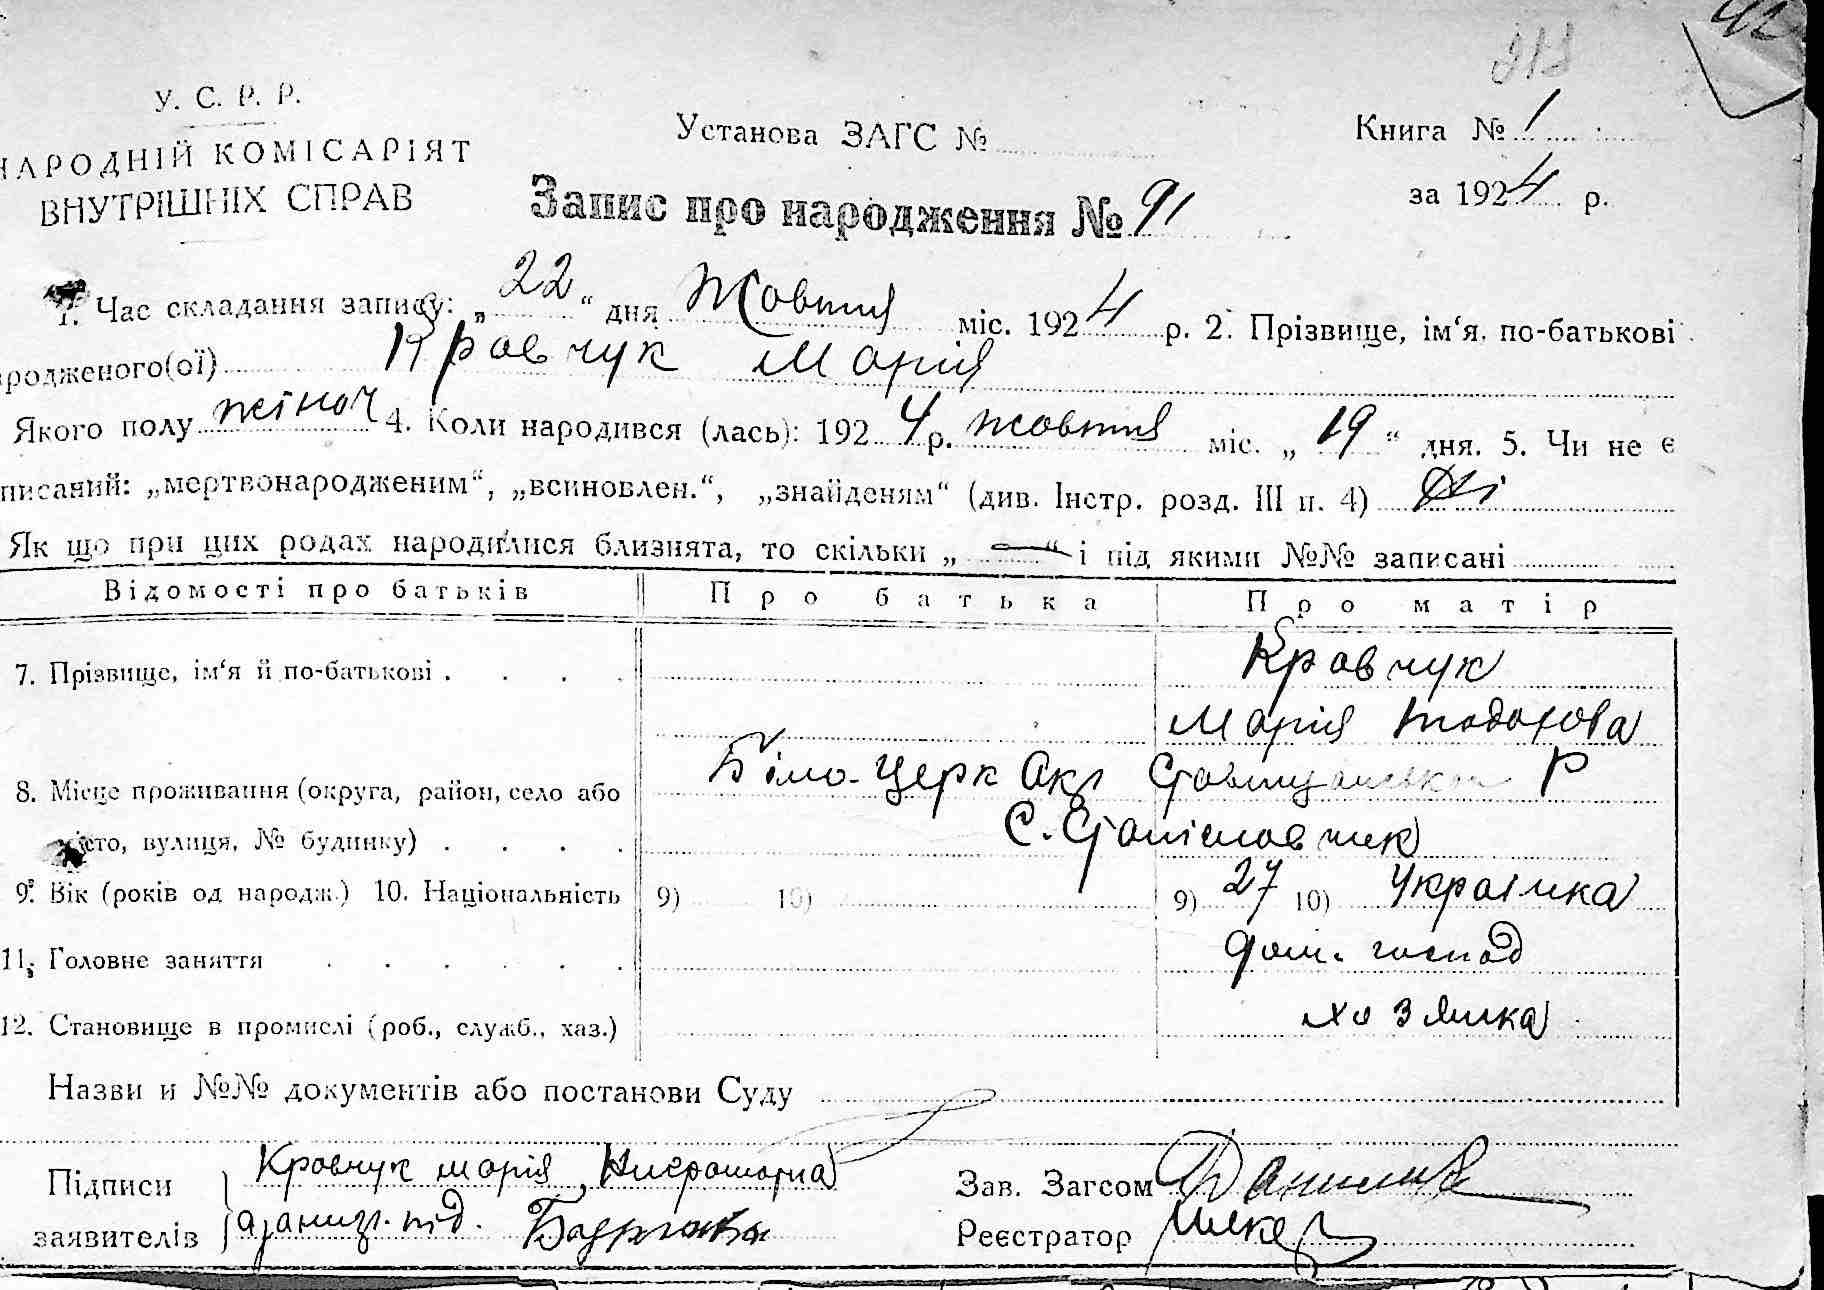 У. С. Р. Р.
НАРОДНІЙ КОМІСАРІЯТ
ВНУТРІШНІХ СПРАВ
Установа ЗАГС №
Книга № 1
за 1924 р.
Запис про народження № 91
1. Час складання запису: „22“ дня Жовтня міс. 1924 р. 2. Прізвище, ім‘я, по-батькові
родженого(ої) Кравчук Марія
Якого полу жіноч 4. Коли народився (лась): 1924 р. жовтня міс. „19“ дня. 5. Чи не є
писаний: „мертвонародженим“, „всиновлен.“, „знайденям“ (див. Інстр. розд. III п. 4) Ні
Як що при цих родах народилися близнята, то скільки „ — “ і під якими №№ записані
Відомості про батьків Про батька Про матір
7. Прізвище, ім‘я й по-батькові . . . . Кравчук
Марія Тодорова
8. Місце проживання (округа, район, село або Біло-Церк Окр Ставищанського Р
місто, вулиця, № будинку) . . . . С. Станіславчик
9. Вік (років од народж.) 10. Національність 9) 10) 9) 27 10) Українка
11. Головне заняття . . . . . . дом. господ
12. Становище в промислі (роб., служб., хаз.) хозяйка
Назви и №№ документів або постанови Суду
Підписи заявителів
Кравчук Марія Ниграмотна
під.
Зав. Загсом
Реєстратор